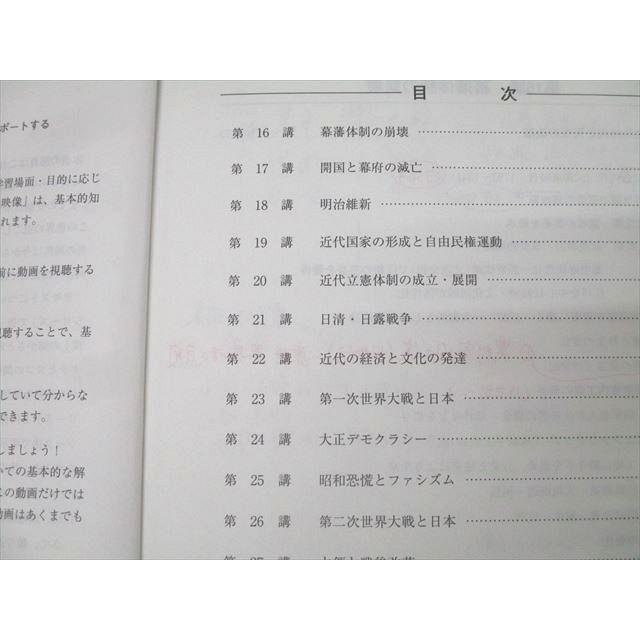 ポートする
学習場面・目的に応じ
映像」は、基本的知
れます。
前に動画を視聴する
視聴することで、基
していて分からな
できます。
しましょう！
いての基本的な解
この動画だけでは
動画はあくまでも
目 次
第 16 講 幕藩体制の崩壊
第 17 講 開国と幕府の滅亡
第 18 講 明治維新
第 19 講 近代国家の形成と自由民権運動
第 20 講 近代立憲体制の成立・展開
第 21 講 日清・日露戦争
第 22 講 近代の経済と文化の発達
第 23 講 第一次世界大戦と日本
第 24 講 大正デモクラシー
第 25 講 昭和恐慌とファシズム
第 26 講 第二次世界大戦と日本